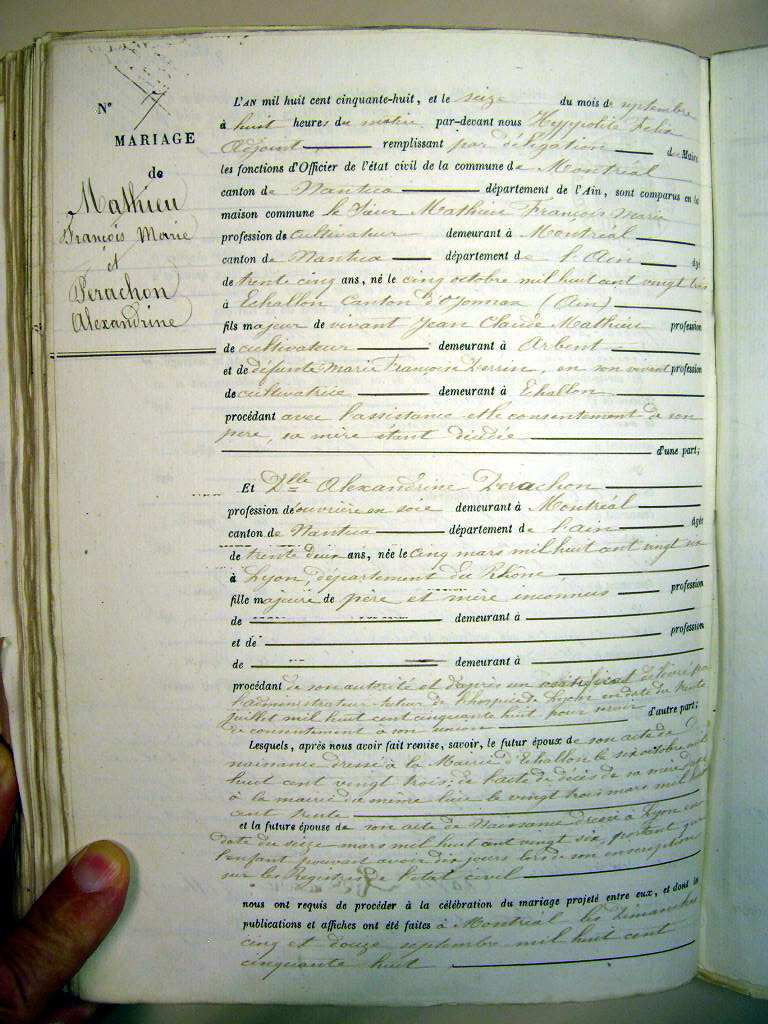 N° 7
MARIAGE
de
Mathieu
François Marie
et
Perachon
Alexandrine
L'AN mil huit cent cinquante-huit, et le seize du mois de septembre
à huit heures du matin par-devant nous Hyppolite Felix
Adjoint remplissant par délégation du Maire
les fonctions d'Officier de l'état civil de la commune de Montréal
canton de Nantua département de l'Ain, sont comparus en la
maison commune le Sieur Mathieu François Marie
profession de cultivateur demeurant à Montréal
canton de Nantua département de l'Ain âgé
de trente cinq ans, né le cinq octobre mil huit cent vingt trois
à Echallon Canton d'Oyonnax (Ain)
fils majeur de vivant Jean Claude Mathieu profession
de cultivateur demeurant à Arbent
et de défunte Marie Françoise Perrin, en son vivant profession
de cultivatrice demeurant à Echallon
procédant avec l'assistance et le consentement de son
père, sa mère étant décédée
d'une part;
Et Dlle Alexandrine Perachon
profession de ouvrière en soie demeurant à Montréal
canton de Nantua département de l'ain âgée
de trente deux ans, née le cinq mars mil huit cent vingt six
à Lyon, département du Rhône
fille majeure de père et mère inconnus profession
de demeurant à
et de profession
de demeurant à
procédant de son autorité et d'après un certificat délivré par
l'administrateur tuteur de l'hospice de Lyon en date du trente
juillet mil huit cent cinquante huit pour servir d'autre part;
de consentement à son
Lesquels, après nous avoir fait remise, savoir, le futur époux de son acte de
naissance dressé à la Mairie d'Echallon le six octobre mil
huit cent vingt trois, de l'acte de décès de sa mère
à la mairie du même lieu le vingt trois mars mil huit
cent trente
et la future épouse de son acte de Naissance dressé à Lyon en
date du seize mars mil huit cent vingt six, portant que
l'enfant pouvait avoir dix jours lors de son inscription
sur les Registres de l'état civil
nous ont requis de procéder à la célébration du mariage projeté entre eux, et dont les
publications et affiches ont été faites à Montréal les dimanches
cinq et douze septembre mil huit cent
cinquante huit